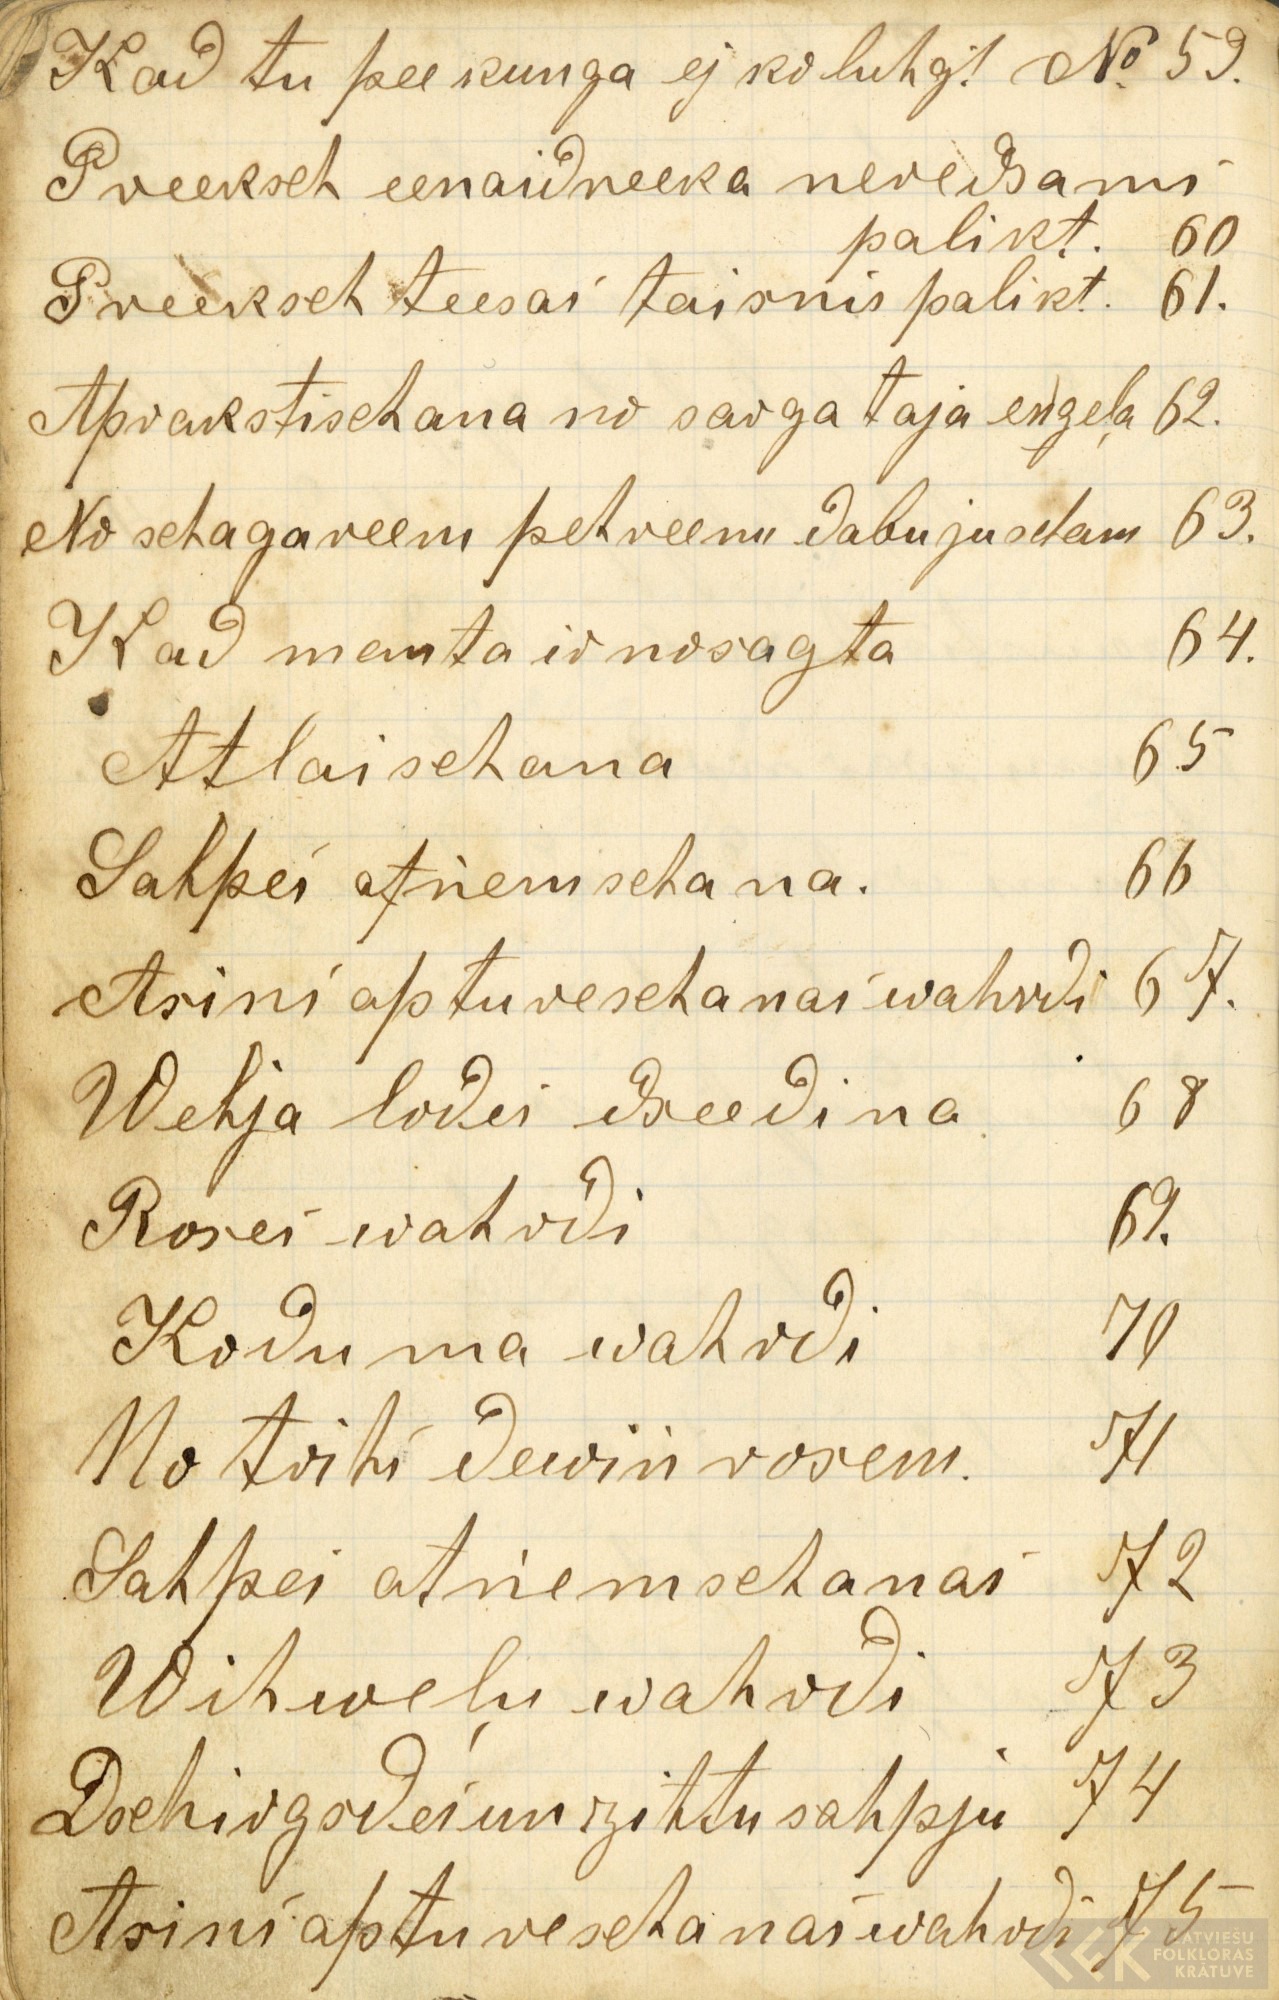 Kad tu pee kunga ej ko luhgt No 59.
Preeksch eenaidneeka neredsams
palikt. 60
Preeksch teesas taisnis palikt. 61.
Aprakstischana no sarga taja engeļa 62.
No schagareem pehreem dabujuscham 63.
Kad manta ir nosagta 64.
Atlaischana 65
Sahpes atņemschana. 66
Asins aptureschanas wahrdi 67.
Wehja lodes dseedina 68
Roses wahrdi 69.
Koduma wahrdi 70
No trihs dewiņ rosem. 71
Sahpes atņemschanas 72
Wihweļu wahrdi 73
Dsehrgsdes un zittu sahpju 74
Asins aptureschanas wahrdi 75
LATVIEŠU
FOLKLORAS
KRĀTUVE